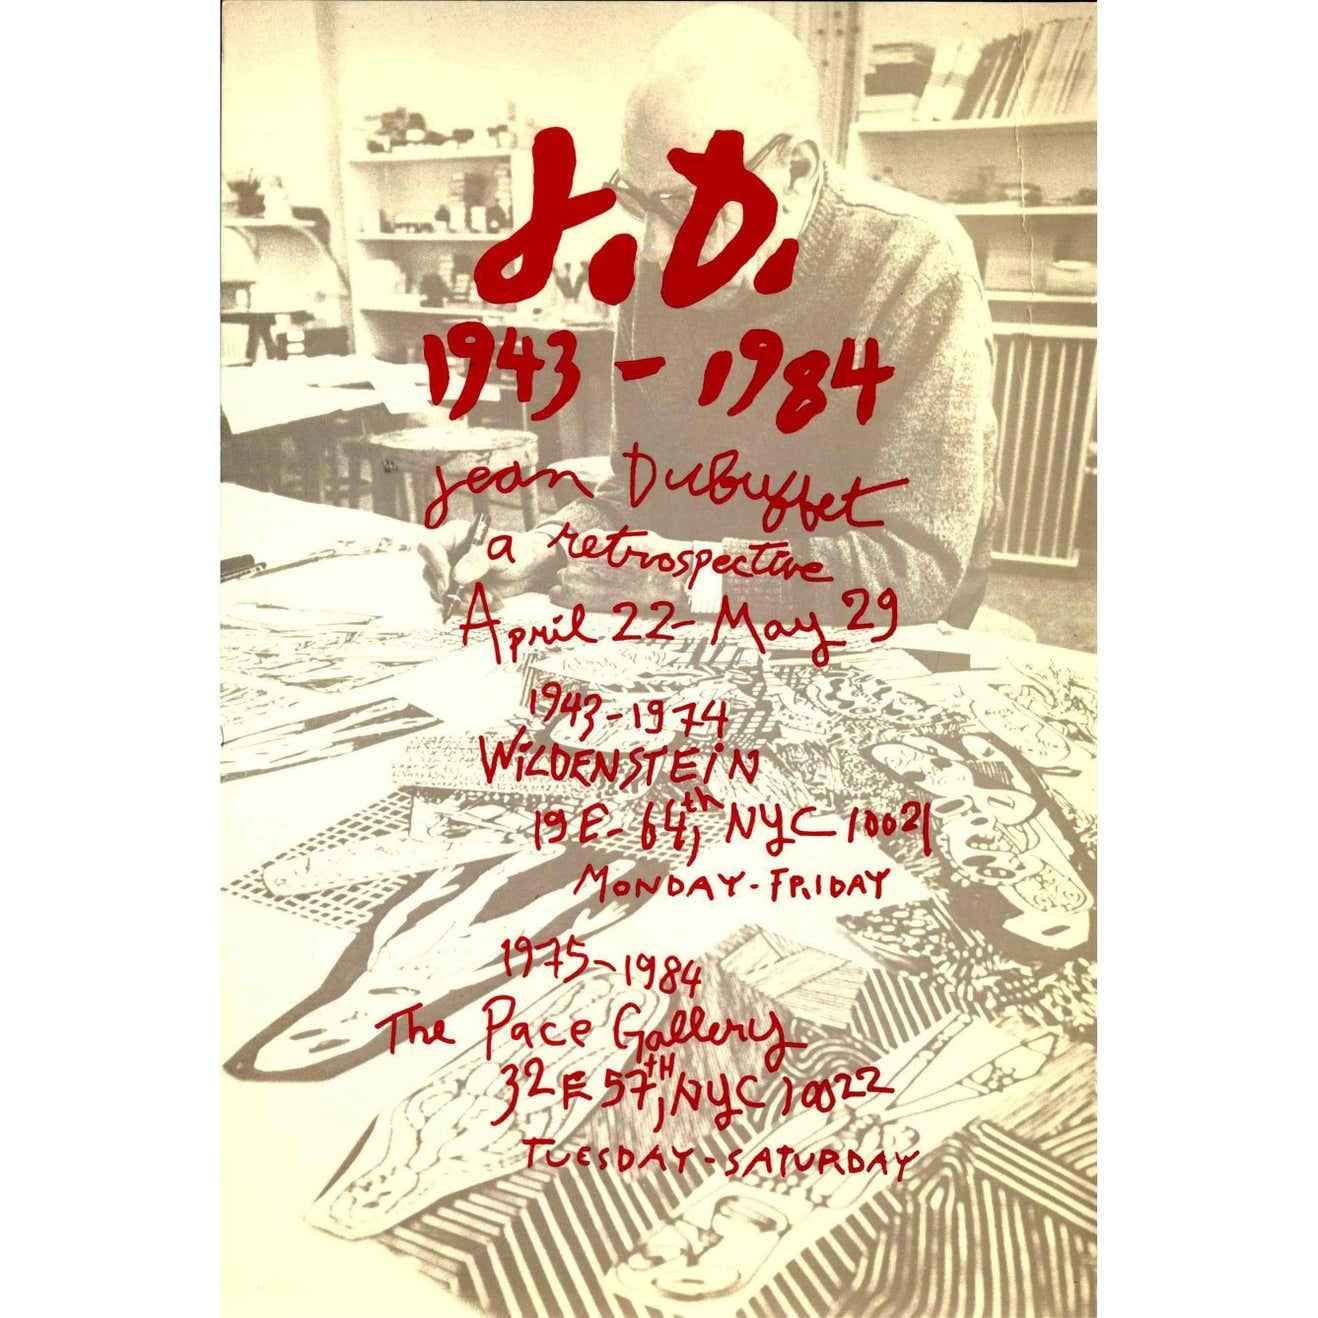 J.D.
1943-1984
Jean Dubuffet
a retrospective
April 22-May 29
1943-1974
WiLDENSTEiN
19 E-64th, NYC 10021
MONDAY-FRIDAY
1975-1984
The Pace Gallery
32 E 57tH, NYC 10022
TUESDAY-SATURDAY